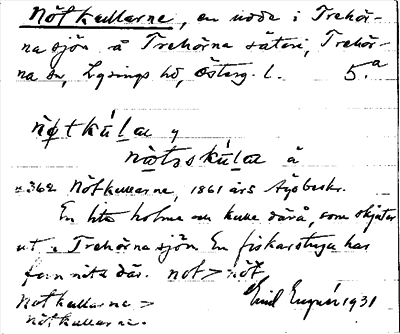 Nötkullarne, en udde i Trehör-
nasjön å Trehörna säteri, Trehör-
na sn, Lysings hd, Österg. l. 5.a
nøtkúlaɛ
å
№ 362 Nötkullarne, 1861 års
En liten holme en kulle därå, som skjuter
ut i Trehörnasjön. En fiskarstuga har
funnits där. not > nöt
Notkullarne >
nötkullarne. Emil 1931